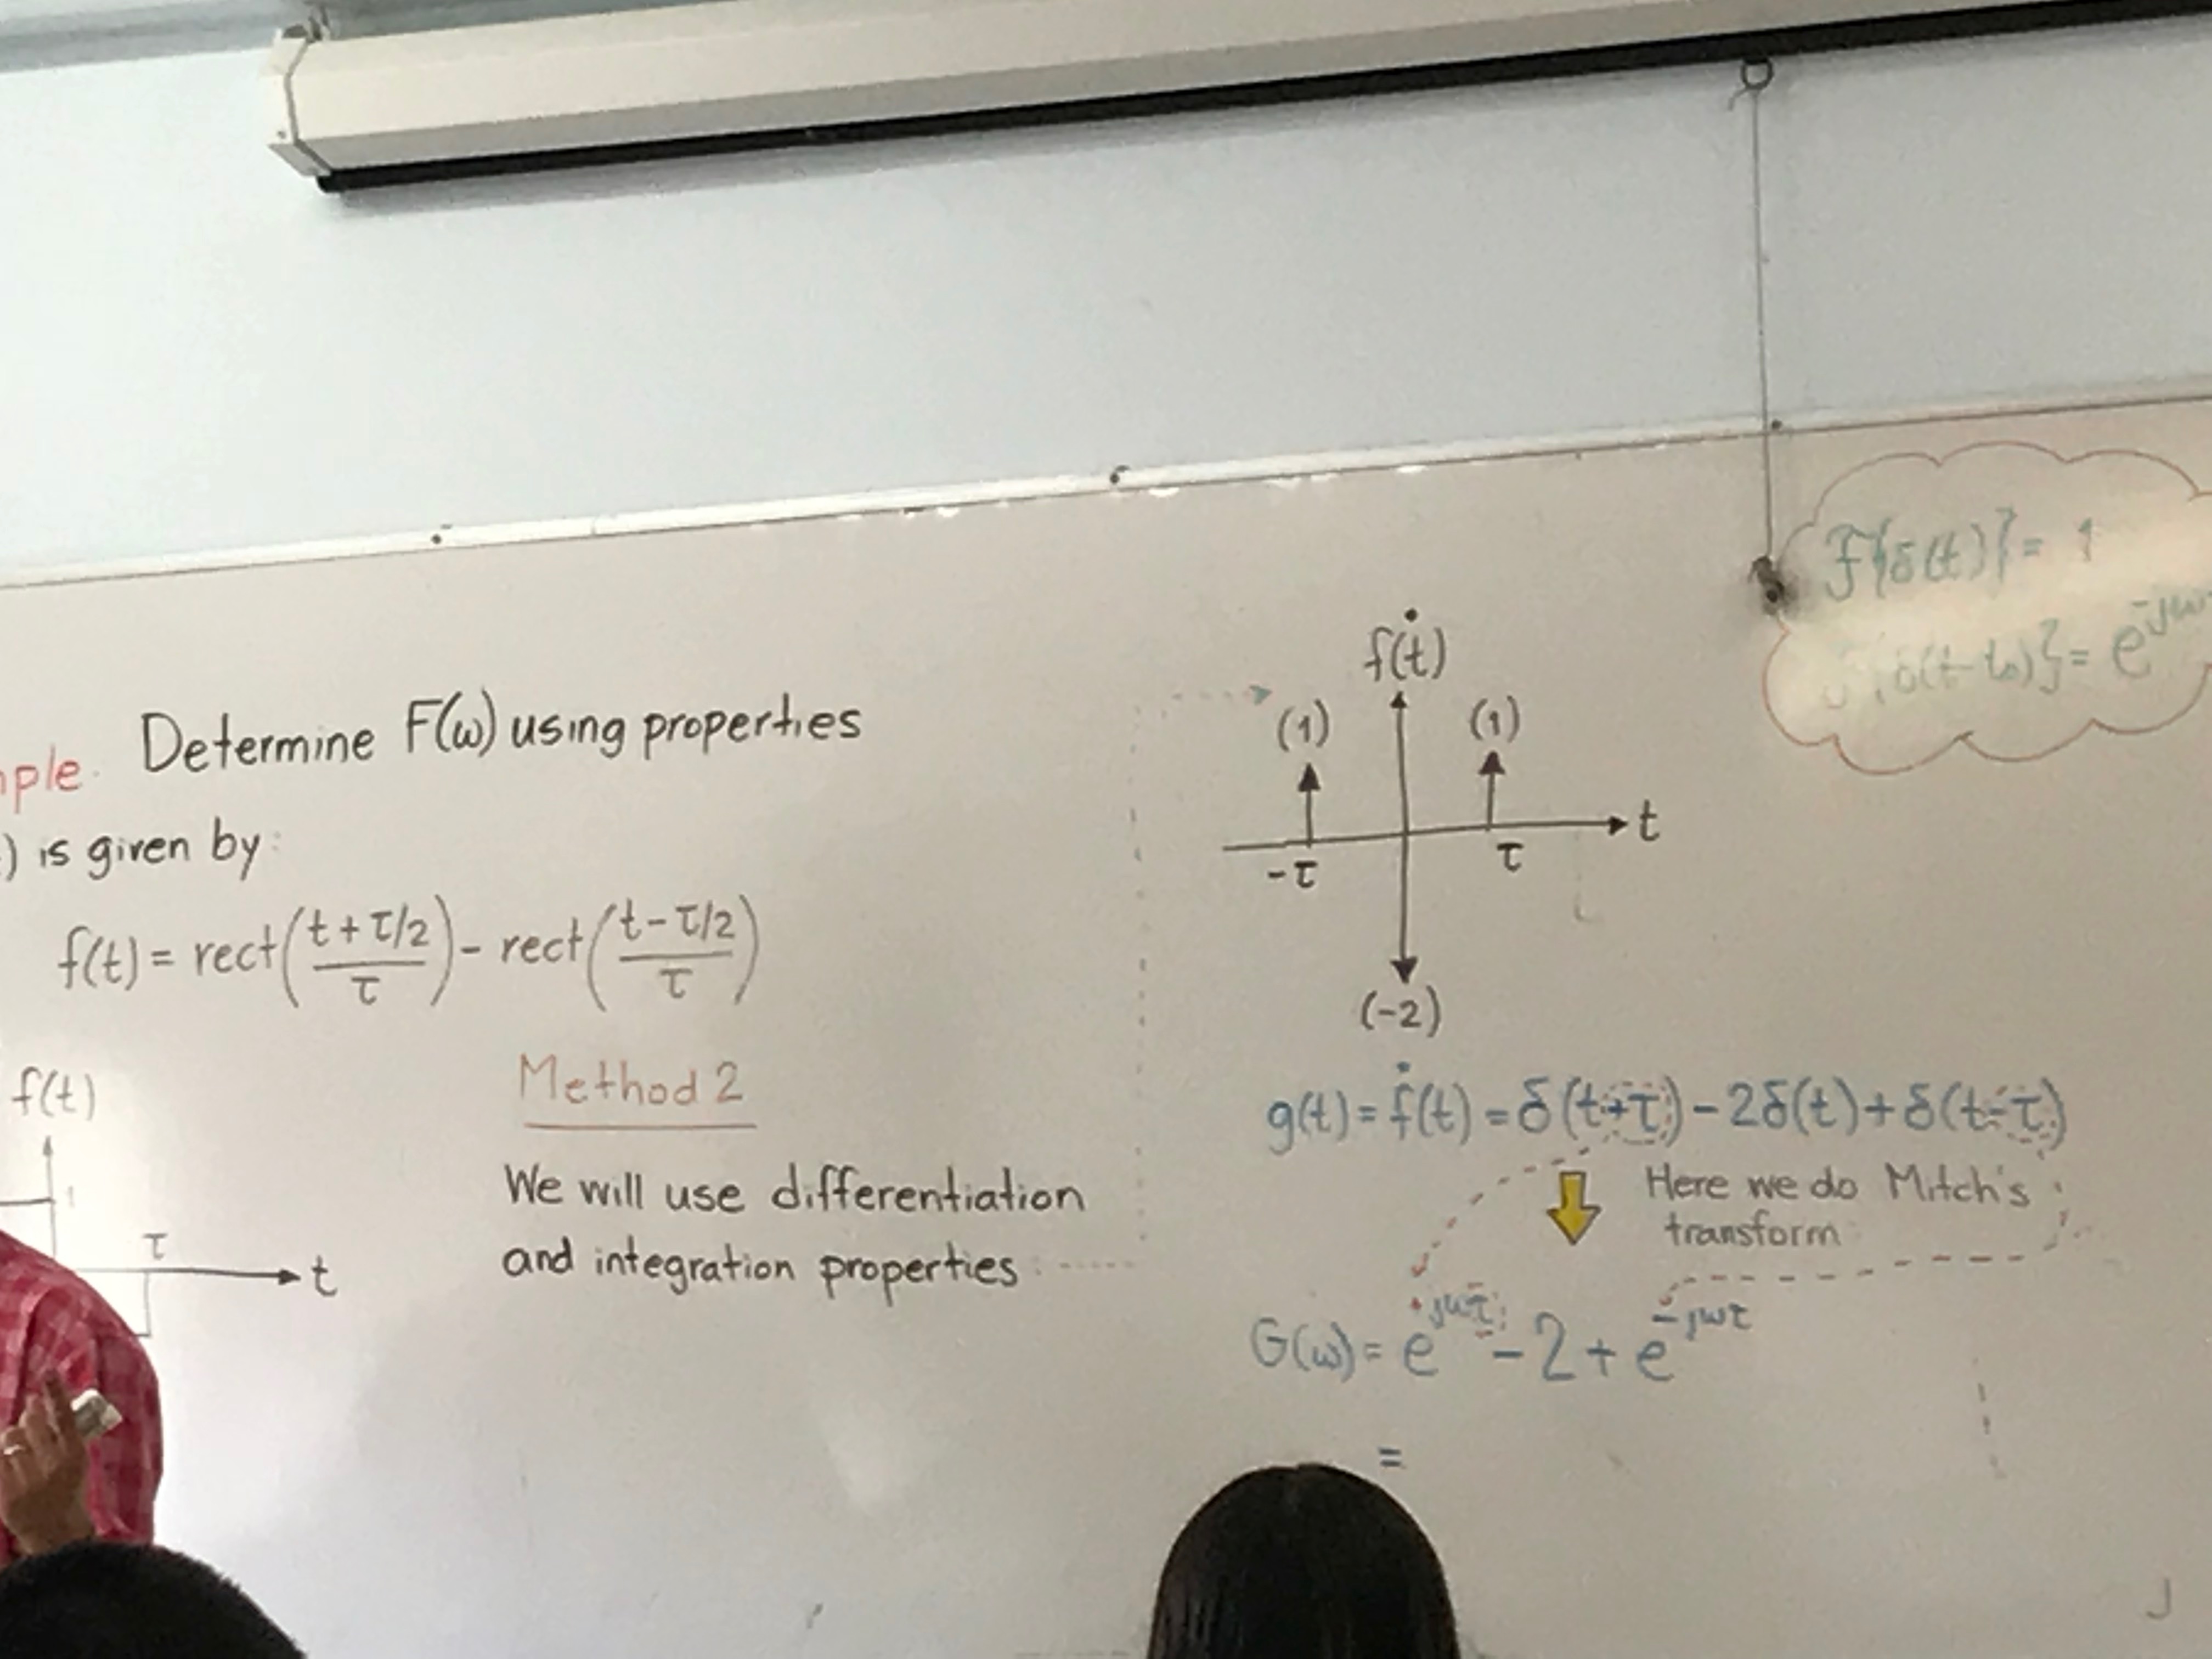 Determine F(ω) using properties
is given by:
f(t) = rect((t + τ/2)/τ) - rect((t - τ/2)/τ)
f(t)
1
τ
t
Method 2
We will use differentiation
and integration properties
ḟ(t)
(1) (1)
t
-τ τ
(-2)
F{δ(t)} = 1
δ(t-t₀)} = e
g(t) = ḟ(t) = δ(t+τ) - 2δ(t) + δ(t-τ)
Here we do Mitch's
transform
G(ω) = e^{jωτ} - 2 + e^{-jωτ}
=